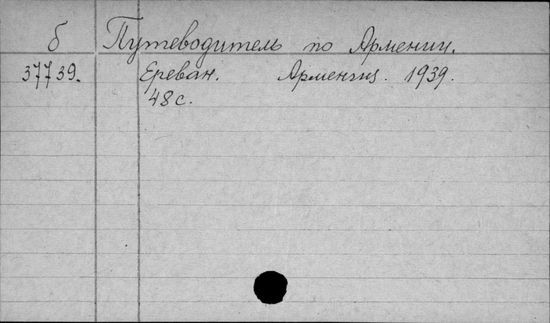 б Путеводитель по Армении.
37739. Ереван. Арменгиз. 1939.
48 с.